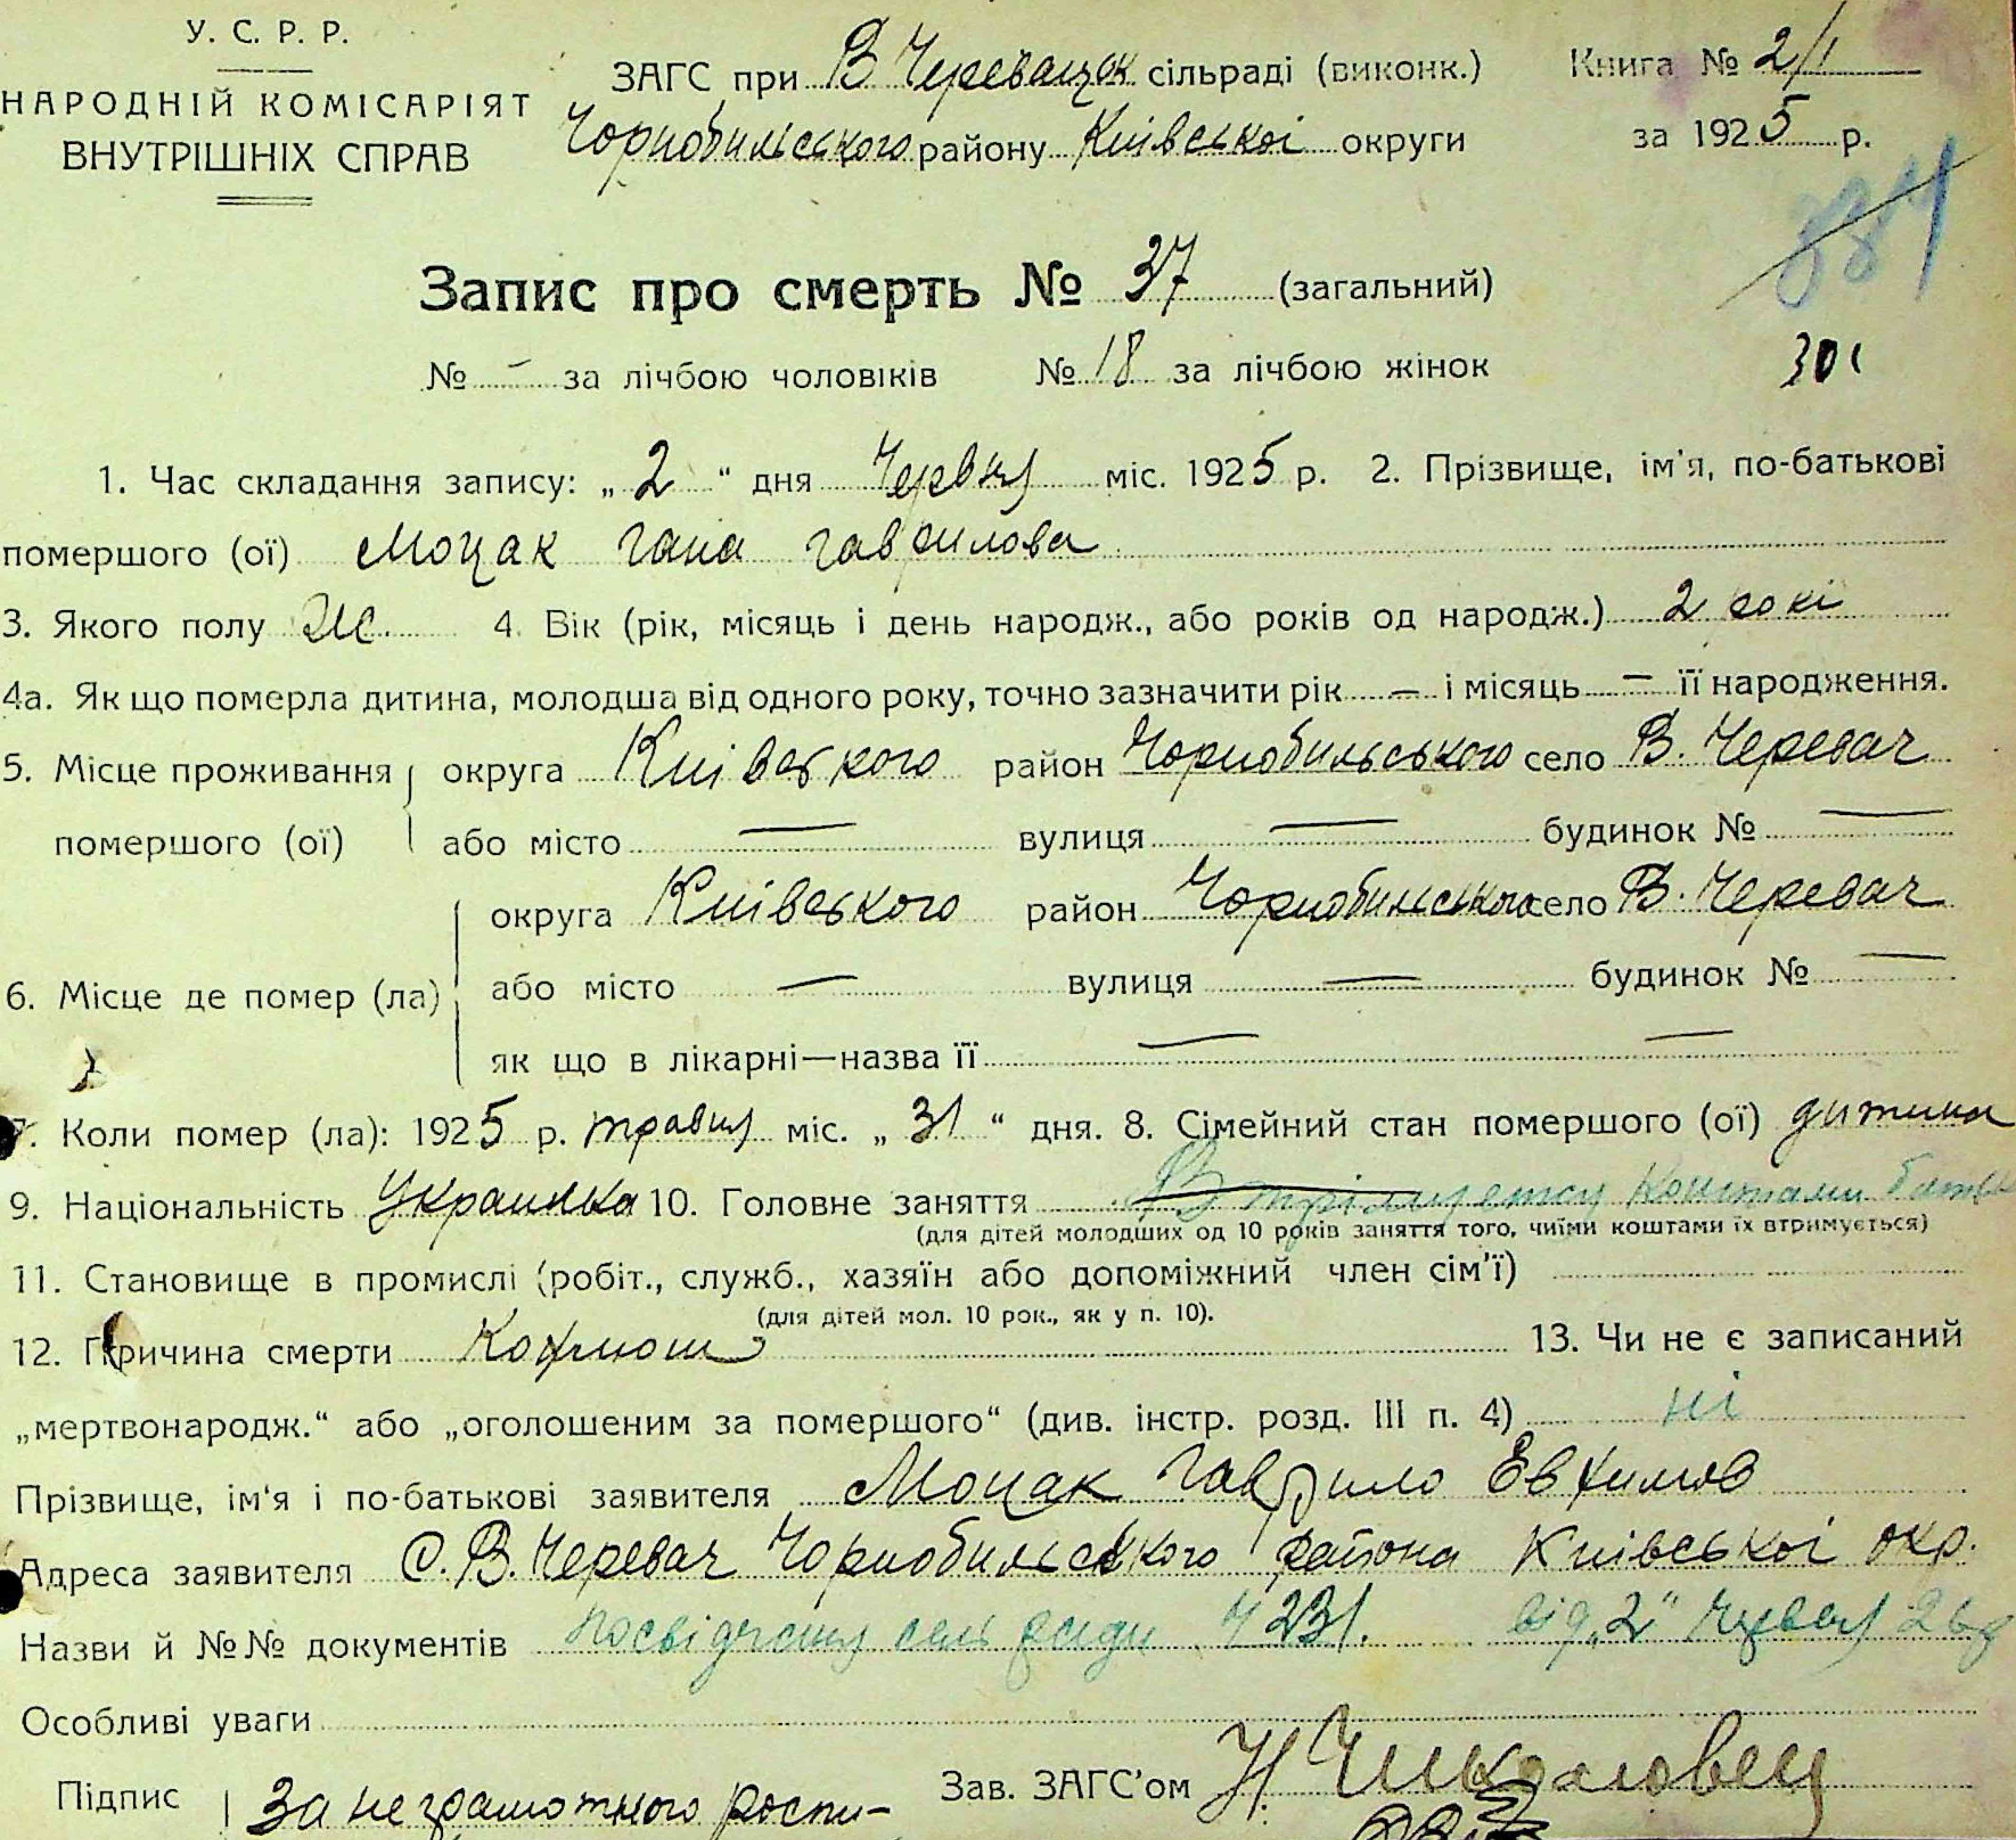 У. С. Р. Р.
НАРОДНІЙ КОМІСАРІЯТ
ВНУТРІШНІХ СПРАВ
ЗАГС при В Черевацьк сільраді (виконк.)
Чорнобильського району Київської округи
Книга № 2/1
за 1925 р.
Запис про смерть № 37 (загальний)
№ - за лічбою чоловіків № 18 за лічбою жінок
301
1. Час складання запису: „2“ дня Червня міс. 1925 р. 2. Прізвище, ім'я, по-батькові
помершого (ої) Моцак Гана Гаврилова
3. Якого полу Ж. 4. Вік (рік, місяць і день народж., або років од народж.) 2 рокі
4а. Як що померла дитина, молодша від одного року, точно зазначити рік — і місяць — її народження.
5. Місце проживання округа Киівського район Чорнобильського село В. Черевач
помершого (ої) або місто — вулиця — будинок № —
округа Киівського район Чорнобильського село В. Черевач
6. Місце де помер (ла) або місто — вулиця — будинок № —
як що в лікарні—назва її — —
7. Коли помер (ла): 1925 р. травня міс. „31“ дня. 8. Сімейний стан помершого (ої) дитина
9. Національність Украинка 10. Головне заняття коштами
(для дітей молодших од 10 років заняття того, чиїми коштами їх втримується)
11. Становище в промислі (робіт., служб., хазяїн або допоміжний член сім'ї)
(для дітей мол. 10 рок., як у п. 10).
12. Причина смерти Коклюш 13. Чи не є записаний
„мертвонародж.“ або „оголошеним за помершого“ (див. інстр. розд. III п. 4) ні
Прізвище, ім'я і по-батькові заявителя Моцак Гаврило Евхимов
Адреса заявителя С. В. Черевач Чорнобильського района Киівськоі окр.
Назви й №№ документів посвідчення сель ради Ч 231. від „2“ Червня
Особливі уваги
Підпис За неграмотного роспи-
Зав. ЗАГС'ом